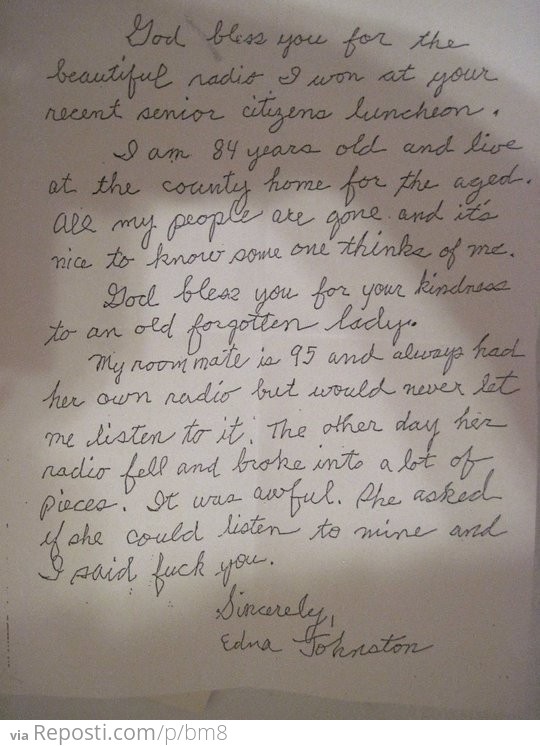 God bless you for the
beautiful radio I won at your
recent senior citizens luncheon.
I am 84 years old and live
at the county home for the aged.
All my people are gone and it's
nice to know some one thinks of me.
God bless you for your kindness
to an old forgotten lady.
My roommate is 95 and always had
her own radio but would never let
me listen to it. The other day her
radio fell and broke into a lot of
pieces. It was awful. She asked
if she could listen to mine and
I said fuck you.
Sincerely,
Edna Johnston
via Reposti.com/p/bm8